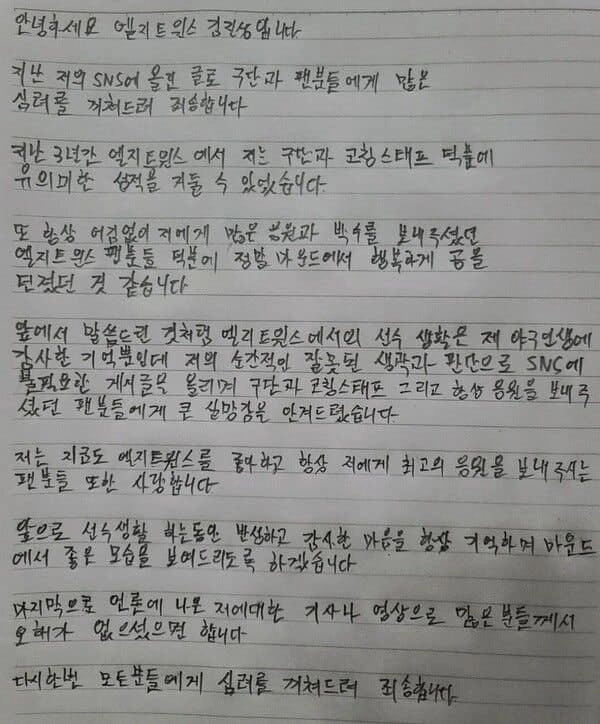 안녕하세요 엘지트윈스 김진성입니다
지난 저의 SNS에 올린 글로 구단과 팬분들에게 많은
심려를 끼쳐드려 죄송합니다
지난 3년간 엘지트윈스에서 저는 구단과 코칭스태프 덕분에
유의미한 성적을 거둘 수 있었습니다
또 항상 어김없이 저에게 많은 응원과 박수를 보내주셨던
엘지트윈스 팬분들 덕분에 정말 마운드에서 행복하게 공을
던졌던 것 같습니다
앞에서 말씀드린 것처럼 엘리트윈스에서의 선수 생활은 제 야구인생에
감사한 기억뿐인데 저의 순간적인 잘못된 생각과 판단으로 SNS에
불필요한 게시글을 올리며 구단과 코칭스태프 그리고 항상 응원을 보내주
셨던 팬분들에게 큰 실망감을 안겨드렸습니다
저는 지금도 엘지트윈스를 좋아하고 항상 저에게 최고의 응원을 보내주시는
팬분들 또한 사랑합니다
앞으로 선수생활 하는동안 반성하고 감사한 마음을 항상 기억하며 마운드
에서 좋은 모습을 보여드리도록 하겠습니다
마지막으로 언론에 나온 저에대한 기사나 영상으로 많은분들께서
오해가 없으셨으면 합니다
다시한번 모든분들에게 심려를 끼쳐드려 죄송합니다